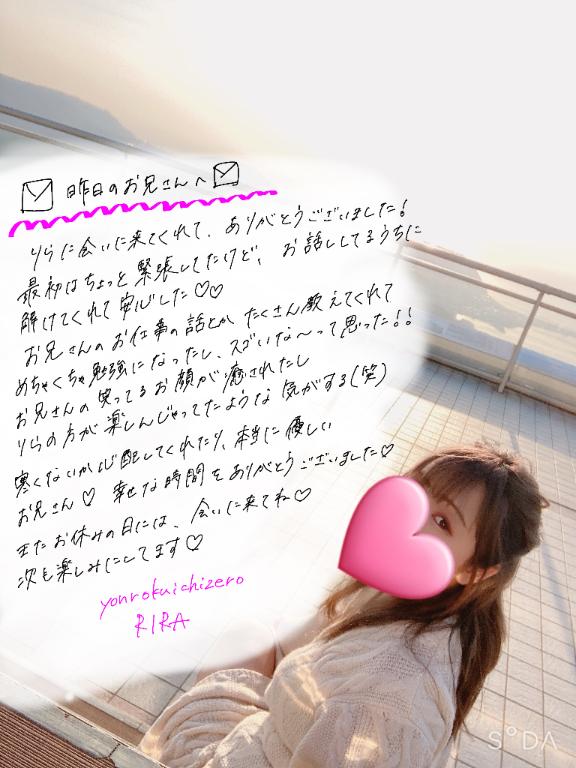 昨日のお兄さんへ
りらに会いに来てくれて、ありがとうございました!
最初はちょっと緊張してたけど、お話ししてるうちに
解けてくれて安心した♡♡
お兄さんのお仕事の話とか、たくさん教えてくれて
めちゃくちゃ勉強になったし、スゴいな〜って思った!!
お兄さんの笑ってるお顔が癒されたし
りらの方が楽しんじゃってたような気がする(笑)
寒くないか心配してくれたり、本当に優しい
お兄さん♡ 幸せな時間をありがとうございました♡
またお休みの日には、会いに来てね♡
次も楽しみにしてます♡
yonrokuichizero
RIRA
SODA